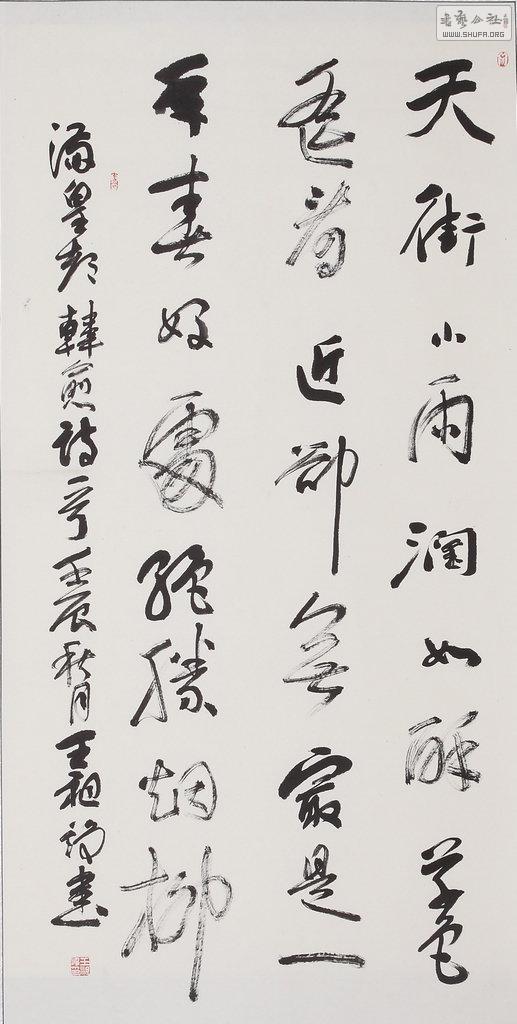 天街小雨潤如酥草色
遙看近卻無最是一
年春好處絕勝煙柳
滿皇都 韓愈詩一首 壬辰秋月 王祖 書
書艺公社
WWW.SHUFA.ORG